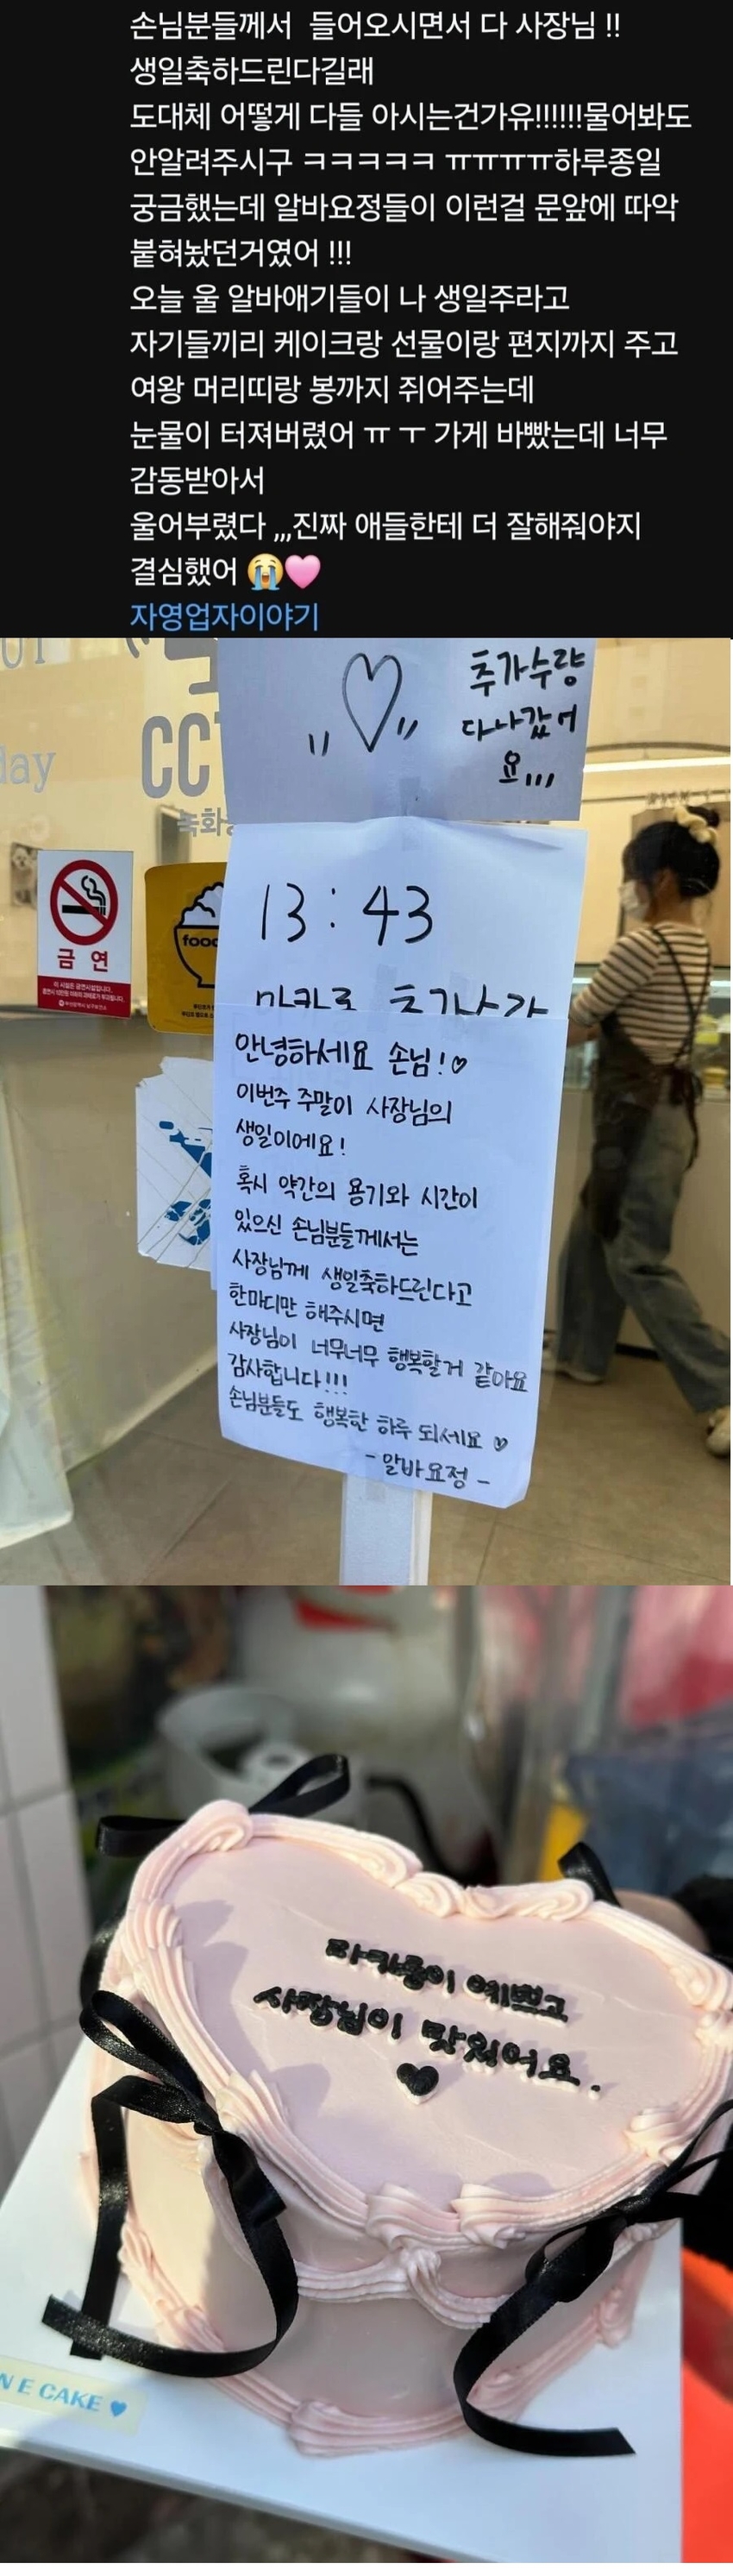 손님분들께서 들어오시면서 다 사장님 !!
생일축하드린다길래
도대체 어떻게 다들 아시는건가유!!!!!!물어봐도
안알려주시구 ㅋㅋㅋㅋㅋ ㅠㅠㅠㅠ하루종일
궁금했는데 알바요정들이 이런걸 문앞에 따악
붙혀놨던거였어 !!!
오늘 울 알바애기들이 나 생일주라고
자기들끼리 케이크랑 선물이랑 편지까지 주고
여왕 머리띠랑 봉까지 쥐어주는데
눈물이 터져버렸어 ㅠ ㅜ 가게 바빴는데 너무
감동받아서
울어부렸다 ,,,진짜 애들한테 더 잘해줘야지
결심했어 😭🩷
자영업자이야기
추가수량
다나갔어
요,,,
day
CC
녹화
금연
food
13:43
마카롱 추가나감
안녕하세요 손님!♡
이번주 주말이 사장님의
생일이에요!
혹시 약간의 용기와 시간이
있으신 손님분들께서는
사장님께 생일축하드린다고
한마디만 해주시면
사장님이 너무너무 행복할거 같아요
감사합니다!!!
손님분들도 행복한 하루 되세요 ♡
- 알바요정 -
마카롱이 예쁘고
사장님이 맛있어요.
♥
N E CAKE ♥